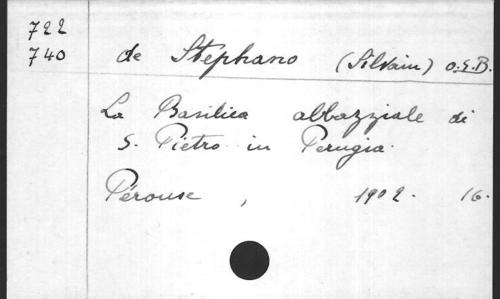 722
740 de Stephano (Silvain) O.S.B.
La Basilica abbazziale di
S. Pietro in Perugia.
Pérouse, 1902. 16.